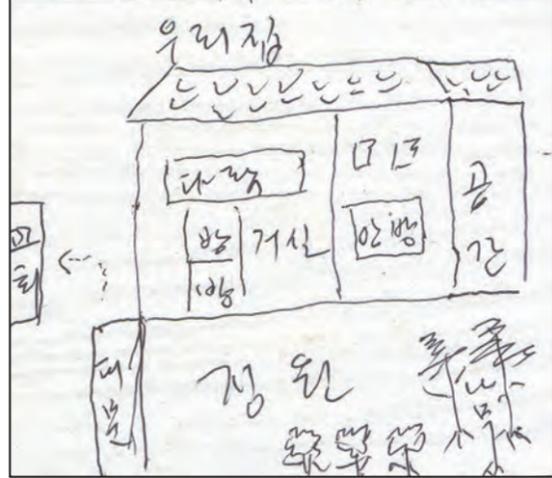 우리집
다락
방 거실 안방
방
공
간
교
회
대
문
정원
나
무